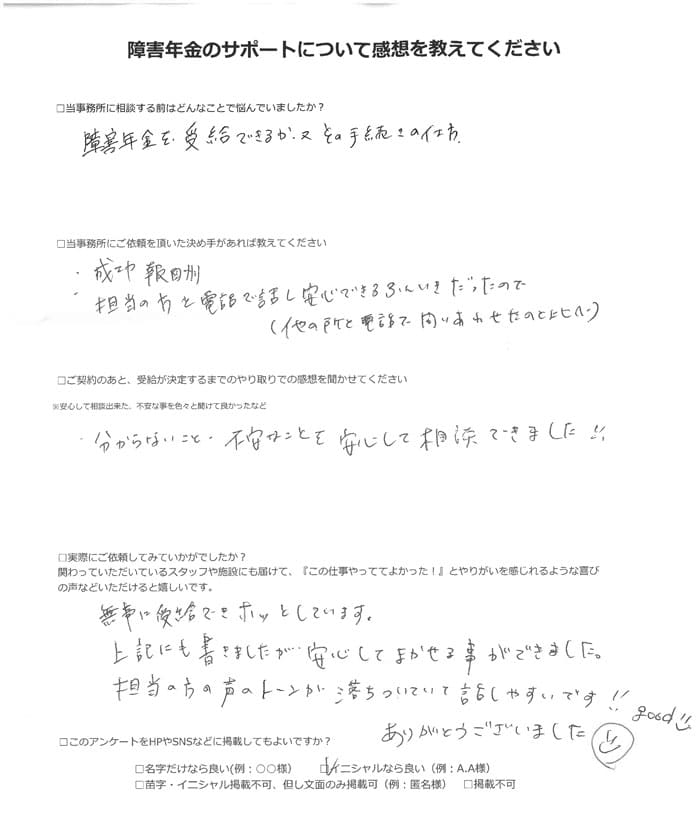 障害年金のサポートについて感想を教えてください
□当事務所に相談する前はどんなことで悩んでいましたか？
障害年金を受給できるか、又その手続きの仕方、
□当事務所にご依頼を頂いた決め手があれば教えてください
・成功報酬
・担当の方と電話で話し安心できるふんいきだったので
(他の所と電話で問いあわせたのと比べ)
□ご契約のあと、受給が決定するまでのやり取りでの感想を聞かせてください
※安心して相談出来た、不安な事を色々と聞けて良かったなど
・分からないこと・不安なことを安心して相談できました!!
□実際にご依頼してみていかがでしたか？
関わっていただいているスタッフや施設にも届けて、『この仕事やっててよかった！』とやりがいを感じれるような喜び
の声などいただけると嬉しいです。
無事に受給できホッとしています。
上記にも書きましたが安心してまかせる事ができました。
担当の方の声のトーンが落ちついていて話しやすいです!! good
ありがとうございました
□このアンケートをHPやSNSなどに掲載してもよいですか？
□名字だけなら良い(例：○○様) ☑イニシャルなら良い（例：A.A様）
□苗字・イニシャル掲載不可、但し文面のみ掲載可（例：匿名様） □掲載不可